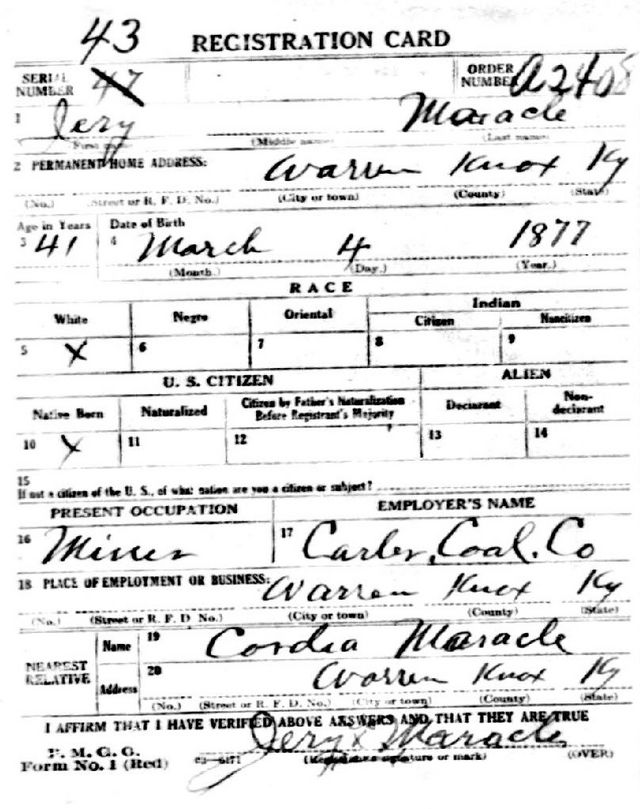 43 REGISTRATION CARD
SERIAL NUMBER 47 ORDER NUMBER A2408
1 Jery Maracle
(First name) (Middle name) (Last name)
2 PERMANENT HOME ADDRESS: Warren Knox Ky
(No.) (Street or R. F. D. No.) (City or town) (County) (State)
Age in Years Date of Birth
3 41 4 March 4 1877
(Month.) (Day.) (Year.)
RACE
White Negro Oriental Indian
Citizen Noncitizen
5 X 6 7 8 9
U. S. CITIZEN ALIEN
Native Born Naturalized Citizen by Father's Naturalization Before Registrant's Majority Declarant Non-declarant
10 X 11 12 13 14
15
If not a citizen of the U. S., of what nation are you a citizen or subject?
PRESENT OCCUPATION EMPLOYER'S NAME
16 Miner 17 Carter Coal. Co
18 PLACE OF EMPLOYMENT OR BUSINESS: Warren Knox Ky
(No.) (Street or R. F. D. No.) (City or town) (County) (State)
NEAREST RELATIVE Name 19 Cordia Maracle
Address 20 Warren Knox Ky
(No.) (Street or R. F. D. No.) (City or town) (County) (State)
I AFFIRM THAT I HAVE VERIFIED ABOVE ANSWERS AND THAT THEY ARE TRUE
P. M. G. O.
Form No. 1 (Red) Jery X Maracle
(Registrant's signature or mark) (OVER)